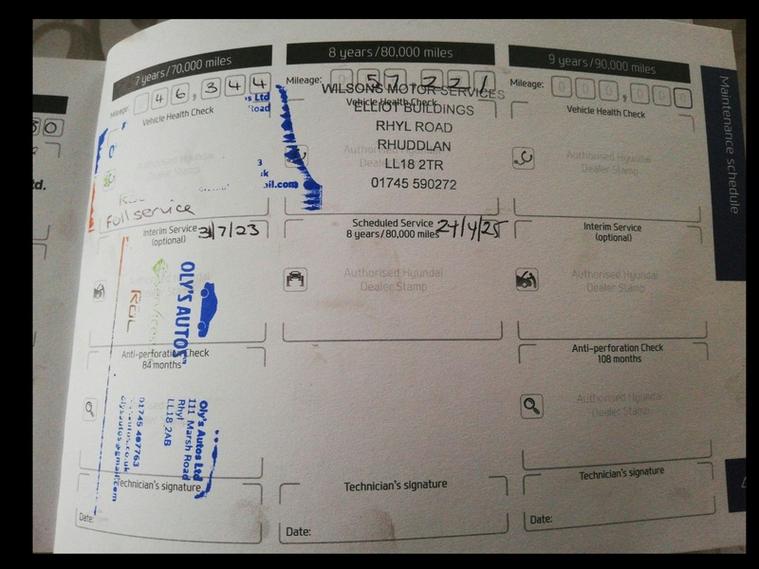 50
td.
7 years/70,000 miles
Mileage: 46,344
s Ltd
Road
Vehicle Health Check
Authorised Hyundai
3
k
il.com
Full service
Interim Service 31/7/23
(optional)
OLY'S AUTOS
RGL
Anti-perforation Check
84 months
Oly's Autos Ltd
111 Marsh Road
Rhyl
LL18 2AB
01745 497763
olysautos@gmail.com
Technician's signature
Date:
8 years/80,000 miles
Mileage: 0 57,221
WILSONS MOTOR SERVICES
Vehicle Health Check
ELLIOT BUILDINGS
RHYL ROAD
RHUDDLAN
LL18 2TR
01745 590272
Scheduled Service
8 years/80,000 miles 24/4/25
Authorised Hyundai
Dealer Stamp
Technician's signature
Date:
9 years/90,000 miles
Mileage: 0 0 0 , 0 0 0
Vehicle Health Check
Authorised Hyundai
Dealer Stamp
Interim Service
(optional)
Authorised Hyundai
Dealer Stamp
Anti-perforation Check
108 months
Authorised Hyundai
Dealer Stamp
Technician's signature
Date:
Maintenance schedule